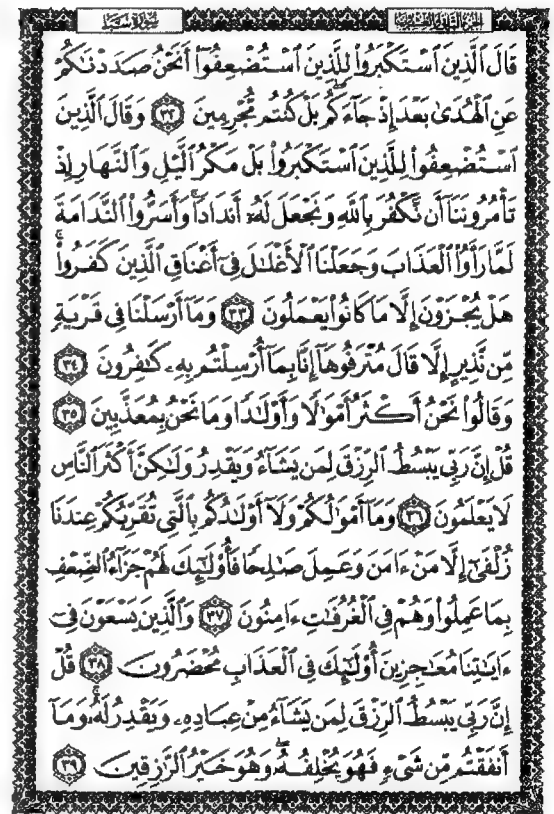 سورة سبإ
الجزء الثاني والعشرون
قَالَ ٱلَّذِينَ ٱسْتَكْبَرُوا۟ لِلَّذِينَ ٱسْتُضْعِفُوٓا۟ أَنَحْنُ صَدَدْنَٰكُمْ
عَنِ ٱلْهُدَىٰ بَعْدَ إِذْ جَآءَكُم بَلْ كُنتُم مُّجْرِمِينَ ٣٢ وَقَالَ ٱلَّذِينَ
ٱسْتُضْعِفُوا۟ لِلَّذِينَ ٱسْتَكْبَرُوا۟ بَلْ مَكْرُ ٱلَّيْلِ وَٱلنَّهَارِ إِذْ
تَأْمُرُونَنَآ أَن نَّكْفُرَ بِٱللَّهِ وَنَجْعَلَ لَهُۥٓ أَندَادًا وَأَسَرُّوا۟ ٱلنَّدَامَةَ
لَمَّا رَأَوُا۟ ٱلْعَذَابَ وَجَعَلْنَا ٱلْأَغْلَٰلَ فِىٓ أَعْنَاقِ ٱلَّذِينَ كَفَرُوا۟
هَلْ يُجْزَوْنَ إِلَّا مَا كَانُوا۟ يَعْمَلُونَ ٣٣ وَمَآ أَرْسَلْنَا فِى قَرْيَةٍ
مِّن نَّذِيرٍ إِلَّا قَالَ مُتْرَفُوهَآ إِنَّا بِمَآ أُرْسِلْتُم بِهِۦ كَٰفِرُونَ ٣٤
وَقَالُوا۟ نَحْنُ أَكْثَرُ أَمْوَٰلًا وَأَوْلَٰدًا وَمَا نَحْنُ بِمُعَذَّبِينَ ٣٥
قُلْ إِنَّ رَبِّى يَبْسُطُ ٱلرِّزْقَ لِمَن يَشَآءُ وَيَقْدِرُ وَلَٰكِنَّ أَكْثَرَ ٱلنَّاسِ
لَا يَعْلَمُونَ ٣٦ وَمَآ أَمْوَٰلُكُمْ وَلَآ أَوْلَٰدُكُم بِٱلَّتِى تُقَرِّبُكُمْ عِندَنَا
زُلْفَىٰٓ إِلَّا مَنْ ءَامَنَ وَعَمِلَ صَٰلِحًا فَأُو۟لَٰٓئِكَ لَهُمْ جَزَآءُ ٱلضِّعْفِ
بِمَا عَمِلُوا۟ وَهُمْ فِى ٱلْغُرُفَٰتِ ءَامِنُونَ ٣٧ وَٱلَّذِينَ يَسْعَوْنَ فِىٓ
ءَايَٰتِنَا مُعَٰجِزِينَ أُو۟لَٰٓئِكَ فِى ٱلْعَذَابِ مُحْضَرُونَ ٣٨ قُلْ
إِنَّ رَبِّى يَبْسُطُ ٱلرِّزْقَ لِمَن يَشَآءُ مِنْ عِبَادِهِۦ وَيَقْدِرُ لَهُۥ وَمَآ
أَنفَقْتُم مِّن شَىْءٍ فَهُوَ يُخْلِفُهُۥ وَهُوَ خَيْرُ ٱلرَّٰزِقِينَ ٣٩